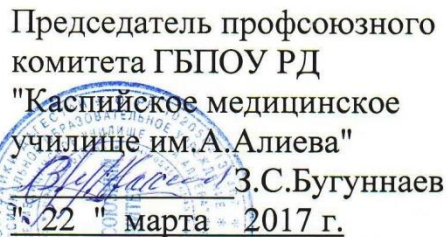 Председатель профсоюзного
комитета ГБПОУ РД
"Каспийское медицинское
училище им.А.Алиева"
З.С.Бугуннаев
" 22 " марта 2017 г.